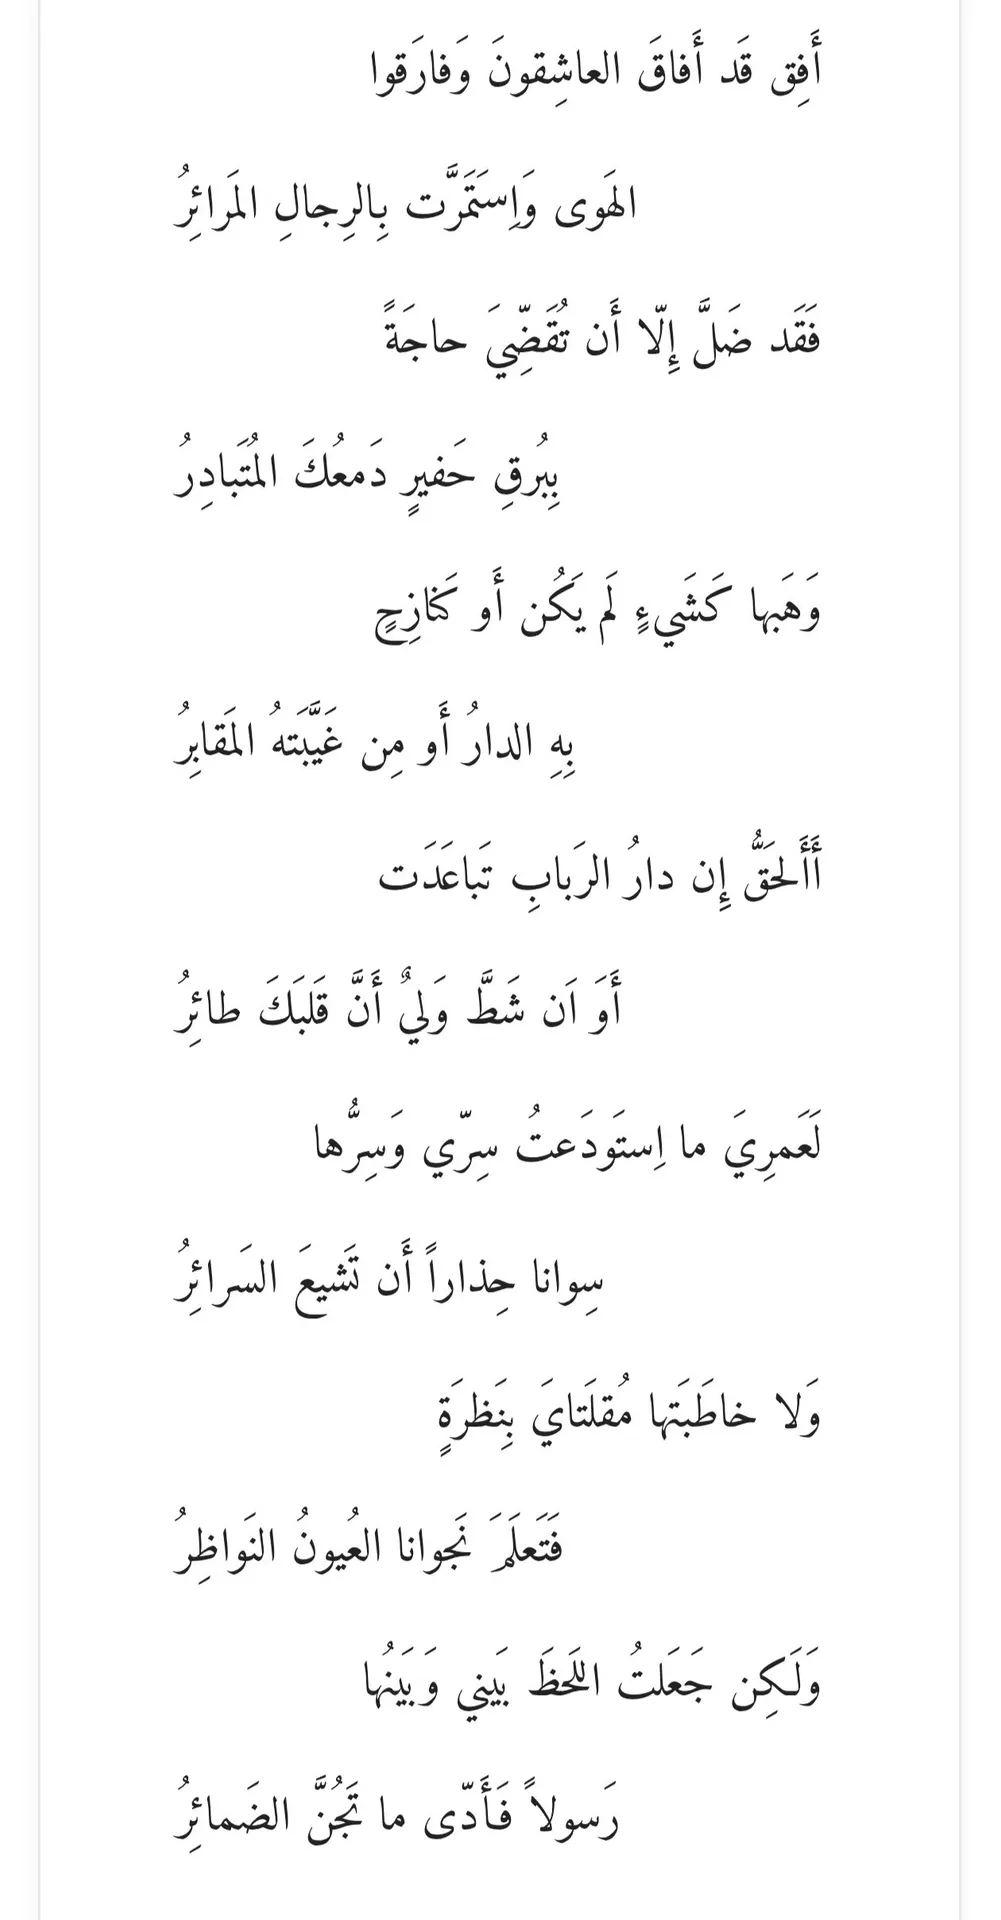 أَفِق قَد أَفاقَ العاشِقونَ وَفارَقوا
الهَوى وَاِستَمَرَّت بِالرِجالِ المَرائِرُ
فَقَد ضَلَّ إِلّا أَن تُقَضِّيَ حاجَةً
بِبُرقِ حَفيرٍ دَمعُكَ المُتَبادِرُ
وَهَبها كَشَيءٍ لَم يَكُن أَو كَنازِحٍ
بِهِ الدارُ أَو مِن غَيَّبَتهُ المَقابِرُ
أَأَلحَقُّ إِن دارُ الرَبابِ تَباعَدَت
أَوَ اَن شَطَّ وَليٌ أَنَّ قَلبَكَ طائِرُ
لَعَمرِيَ ما اِستَودَعتُ سِرّي وَسِرُّها
سِوانا حِذاراً أَن تَشيعَ السَرائِرُ
وَلا خاطَبَتها مُقلَتايَ بِنَظرَةٍ
فَتَعلَمَ نَجوانا العُيونُ النَواظِرُ
وَلَكِن جَعَلتُ اللَحظَ بَيني وَبَينُها
رَسولاً فَأَدّى ما تَجُنَّ الضَمائِرُ